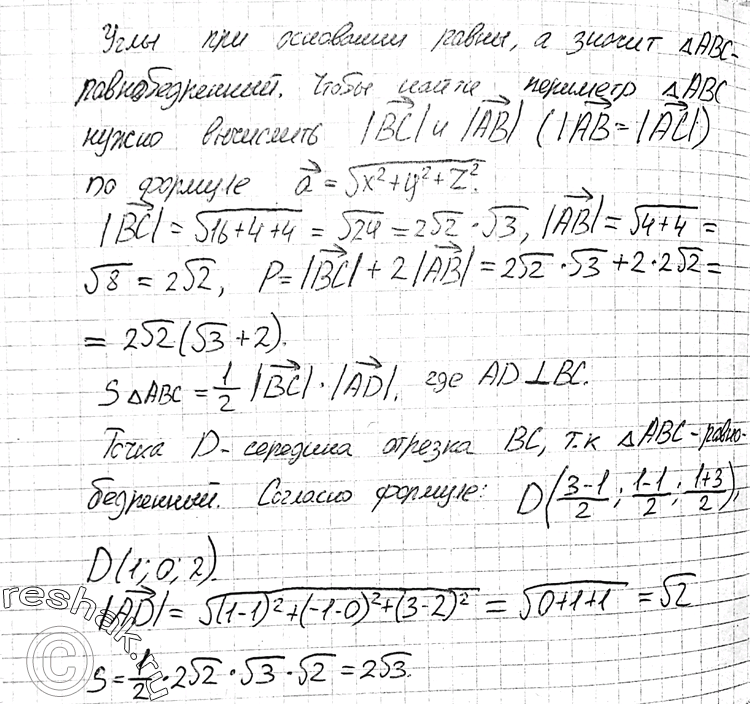 Углы при основании равны, а значит △ABC-
равнобедренный. Чтобы найти периметр △ABC
нужно вычислить |BC⃗| и |AB⃗| (|AB⃗=|AC⃗|)
по формуле a⃗=√(x²+y²+z²).
|BC⃗|=√(16+4+4)=√24=2√2·√3, |AB⃗|=√(4+4)=
√8=2√2, P=|BC⃗|+2|AB⃗|=2√2·√3+2·2√2=
=2√2(√3+2).
S△ABC=1/2|BC⃗|·|AD⃗|, где AD⊥BC.
Точка D-середина отрезка BC, т.к △ABC-равно-
бедренный. Согласно формуле: D((3-1)/2; (1-1)/2; (1+3)/2),
D(1; 0; 2).
|AD⃗|=√((1-1)²+(-1-0)²+(3-2)²)=√(0+1+1)=√2
S=1/2·2√2·√3·√2=2√3.
reshak.ru
©